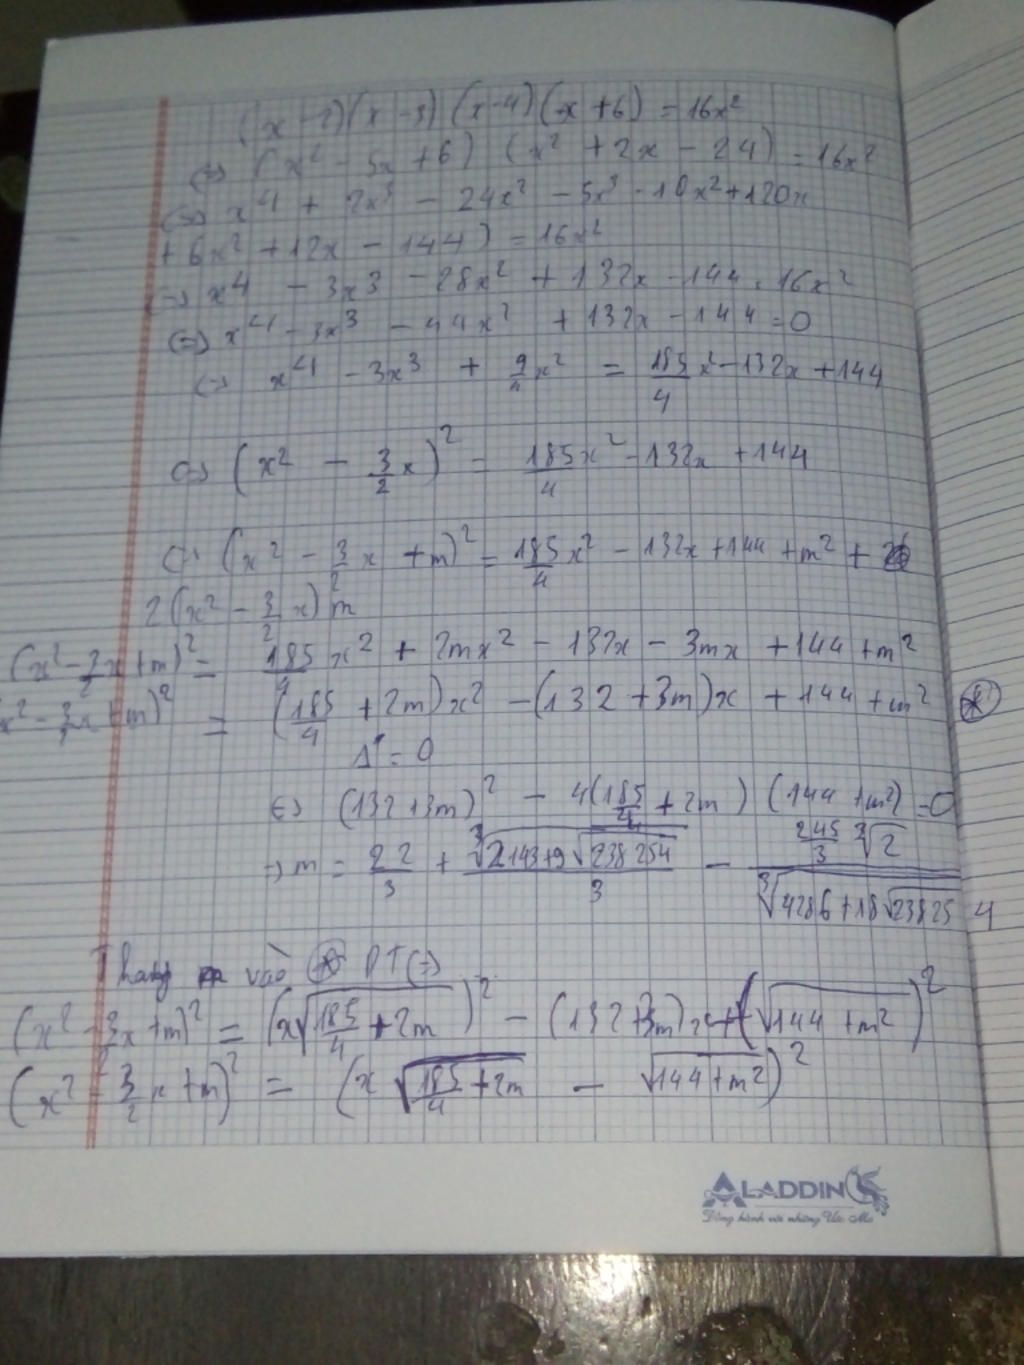 (x - 2)(x - 3)(x - 4)(x + 6) = 16x²
(⇔) (x² - 5x + 6) (x² + 2x - 24) = 16x²
(⇔) x⁴ + 2x³ - 24x² - 5x³ - 10x² + 120x
+ 6x² + 12x - 144) = 16x²
(⇔) x⁴ - 3x³ - 28x² + 132x - 144 = 16x²
(⇔) x⁴ - 3x³ - 44x² + 132x - 144 = 0
(⇔) x⁴ - 3x³ + 9/4 x² = 185/4 x² - 132x + 144
(⇔) (x² - 3/2 x)² = 185/4 x² - 132x + 144
(⇔) (x² - 3/2 x + m)² = 185/4 x² - 132x + 144 + m² +
2(x² - 3/2 x) m
(x² - 3/2 x + m)² = 185/4 x² + 2mx² - 132x - 3mx + 144 + m²
(x² - 3/2 x + m)² = (185/4 + 2m)x² - (132 + 3m)x + 144 + m² (*)
Δ = 0
(⇔) (132 + 3m)² - 4(185/4 + 2m) (144 + m²) = 0
→ m = 22/3 + ∛(2143 + 9√238254)/3 - (245/3 ∛2)/∛(4286 + 18√238254)
Thay m vào (*) PT (⇔)
(x² - 3/2 x + m)² = (x√(185/4 + 2m))² - (132 + 3m)x + (√(144 + m²))²
(x² - 3/2 x + m)² = (x √(185/4 + 2m) - √(144 + m²))²
ALADDIN
Đồng hành với những Ước Mơ